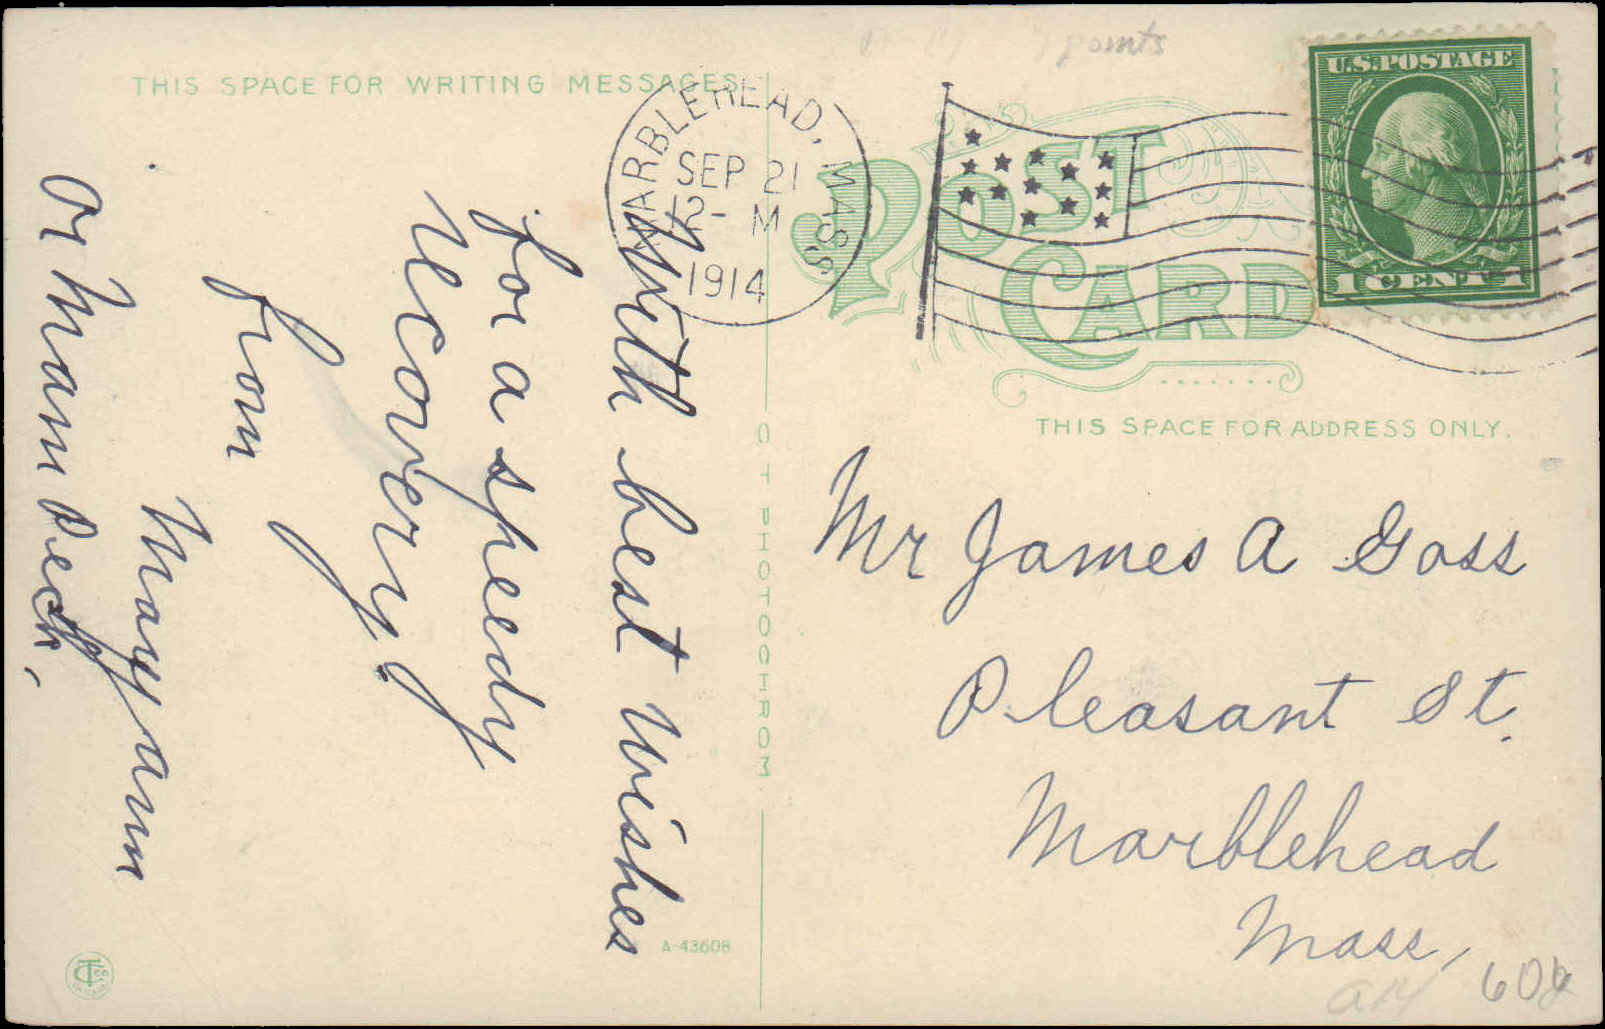 THIS SPACE FOR WRITING MESSAGES
With best wishes
for a speedy
recovery
from
Maryann
or Mam Peck,
A-43608
MARBLEHEAD, MASS
SEP 21
12- M
1914
POST CARD
U.S. POSTAGE
1 CENT 1
THIS SPACE FOR ADDRESS ONLY.
Mr James A Goss
Pleasant St.
Marblehead
Mass,
points